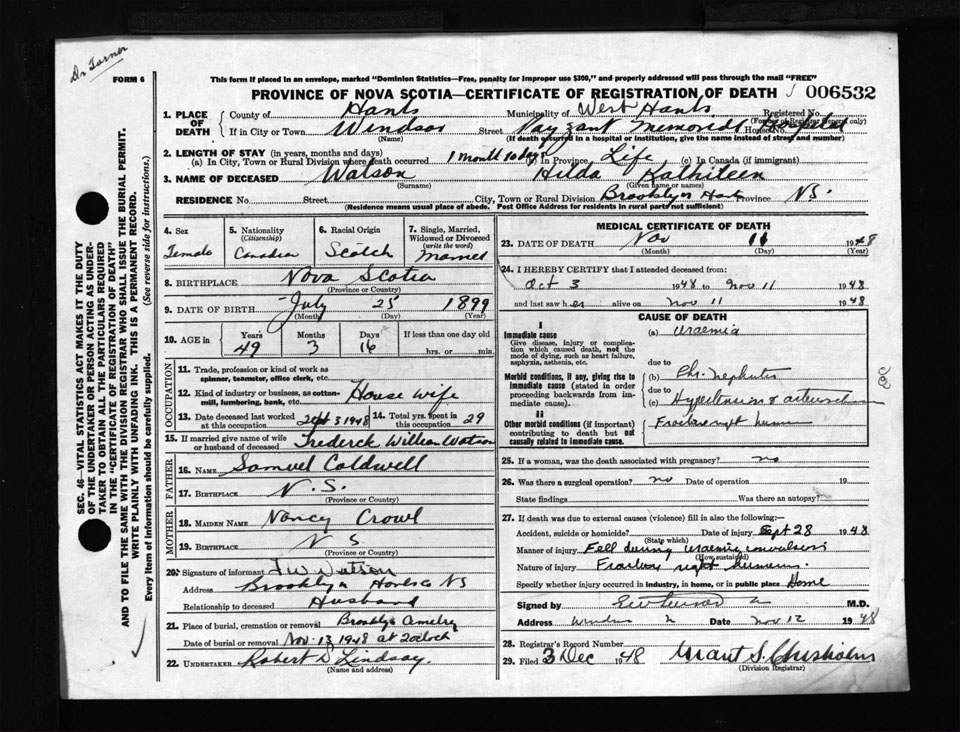 Dr Turner
FORM 6
This form if placed in an envelope, marked "Dominion Statistics—Free, penalty for improper use $300," and properly addressed will pass through the mail "FREE"
PROVINCE OF NOVA SCOTIA—CERTIFICATE OF REGISTRATION OF DEATH 006532
1. PLACE OF DEATH
County of Hants Municipality of West Hants Registered No.
(For use of Registrar General only)
If in City or Town Windsor Street Payzant Memorial Hospital House No.
(Name) (If death occurred in a hospital or institution, give name instead of street and number)
2. LENGTH OF STAY (in years, months and days)
(a) In City, Town or Rural Division where death occurred 1 month 10 days (b) In Province Life (c) In Canada (if immigrant)
3. NAME OF DECEASED Watson Hilda Kathileen
(Surname) (Given name or names)
RESIDENCE No. Street City, Town or Rural Division Brooklyn Hants Province N.S.
(Residence means usual place of abode. Post Office Address for residents in rural parts not sufficient)
4. Sex Female
5. Nationality (Citizenship) Canadian
6. Racial Origin Scotch
7. Single, Married, Widowed or Divorced (write the word) Married
8. BIRTHPLACE Nova Scotia
(Province or Country)
9. DATE OF BIRTH July 25 1899
(Month) (Day) (Year)
10. AGE in Years Months Days If less than one day old
49 3 16 hrs. or min.
OCCUPATION
11. Trade, profession or kind of work as spinner, teamster, office clerk, etc.
12. Kind of industry or business, as cotton-mill, lumbering, bank, etc. House wife
13. Date deceased last worked at this occupation Sept 3 1948 14. Total yrs. spent in this occupation 29
15. If married give name of wife or husband of deceased Frederck William Watson
FATHER
16. NAME Samuel Caldwell
17. BIRTHPLACE N.S.
(Province or Country)
MOTHER
18. MAIDEN NAME Nancy Crowl
19. BIRTHPLACE N S
(Province or Country)
20. Signature of informant F W Watson
Address Brooklyn Hants Co NS
Relationship to deceased Husband
21. Place of burial, cremation or removal Brooklyn
Date of burial or removal Nov. 13 1948 at 2 oclock
22. UNDERTAKER Robert D Lindsay.
(Name and address)
MEDICAL CERTIFICATE OF DEATH
23. DATE OF DEATH Nov 11 1948
(Month) (Day) (Year)
24. I HEREBY CERTIFY that I attended deceased from:
Oct 3 1948 to Nov 11 1948
and last saw her alive on Nov 11 1948
CAUSE OF DEATH
I
Immediate cause
Give disease, injury or complication which caused death, not the mode of dying, such as heart failure, asphyxia, asthenia, etc.
(a) Uraemia
due to
Morbid conditions, if any, giving rise to immediate cause (stated in order proceeding backwards from immediate cause).
(b) Chr. nephritis
due to
(c) Hypertension &
II
Other morbid conditions (if important) contributing to death but not causally related to immediate cause.
Fracture right humerus
25. If a woman, was the death associated with pregnancy? no
26. Was there a surgical operation? no Date of operation 19
State findings Was there an autopsy?
27. If death was due to external causes (violence) fill in also the following:—
Accident, suicide or homicide? Date of injury Sept 28 1948
(State which)
Manner of injury Fell during uraemic convulsion
Nature of injury Fracture right humerus
Specify whether injury occurred in industry, in home, or in public place Home
Signed by M.D.
Address Windsor Date Nov 12 1948
28. Registrar's Record Number
29. Filed 3 Dec 1948 Grant S. Chisholm
(Division Registrar)
SEC. 46—VITAL STATISTICS ACT MAKES IT THE DUTY
OF THE UNDERTAKER OR PERSON ACTING AS UNDER-
TAKER TO OBTAIN ALL THE PARTICULARS REQUIRED
IN THE "CERTIFICATE OF REGISTRATION OF DEATH"
AND TO FILE THE SAME WITH THE DIVISION REGISTRAR WHO SHALL ISSUE THE BURIAL PERMIT.
WRITE PLAINLY WITH UNFADING INK. THIS IS A PERMANENT RECORD.
Every item of information should be carefully supplied. (See reverse side for instructions.)